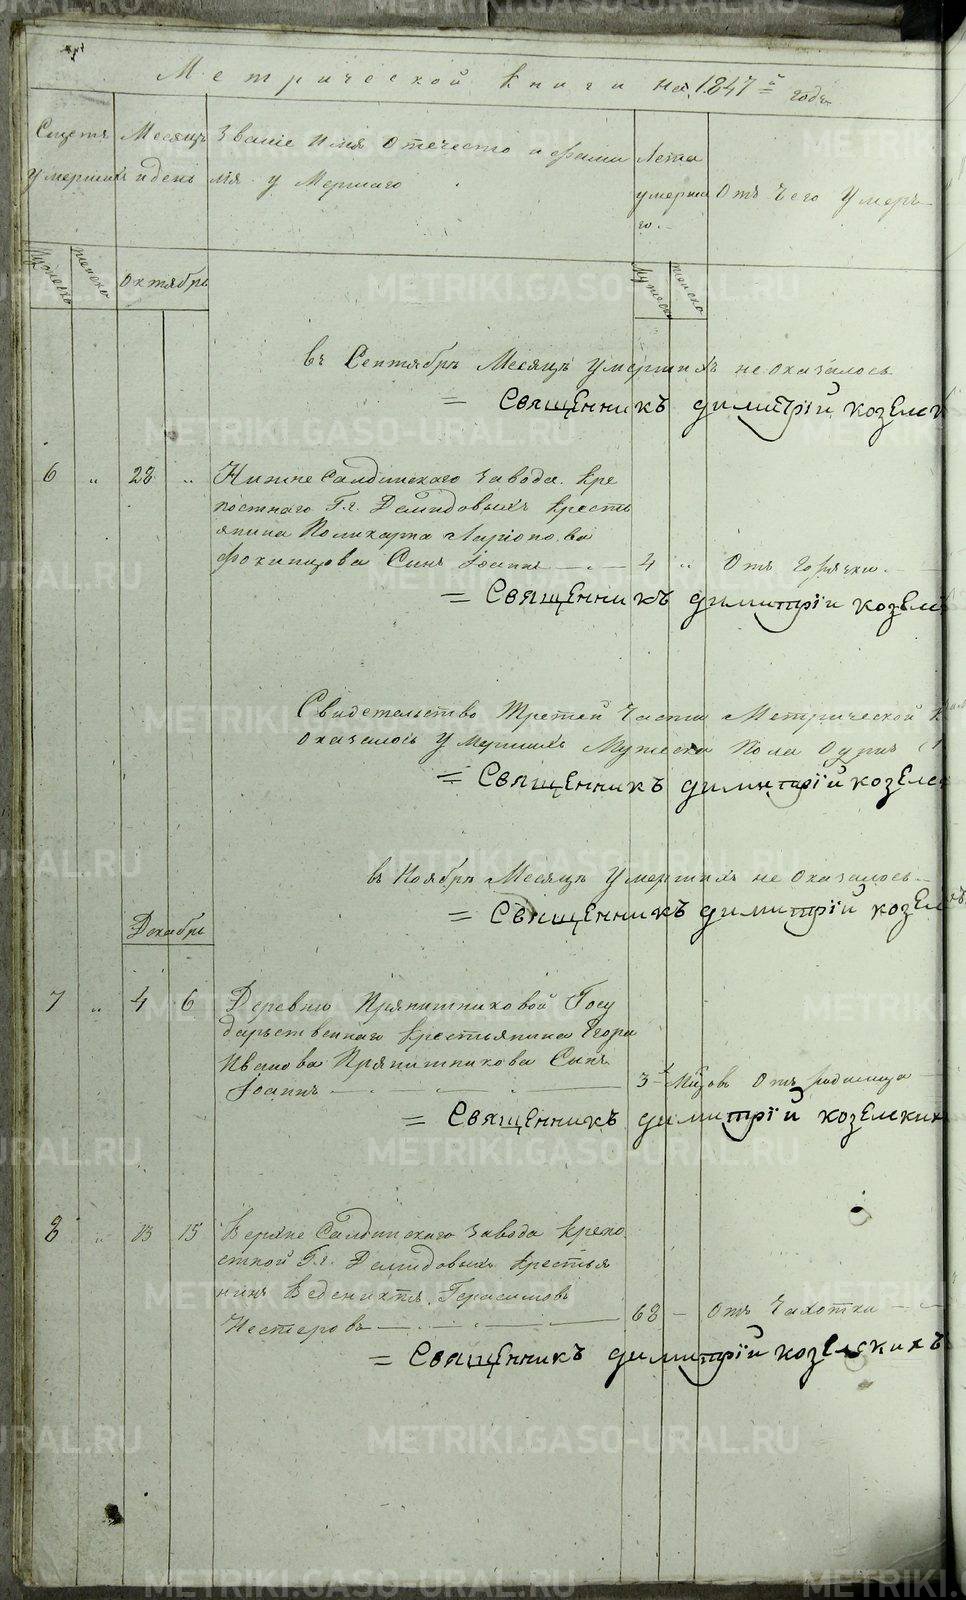 Метрической книги на 1847й годъ
Счетъ Месяцъ Званіе Имя Отечество и фами Лета
умершихъ и день лія умершаго умерша Отъ Чего Умеръ
го.
Мужеска женска Октябрь Мужеска женска
въ Сентябрѣ Месяцѣ умершихъ не оказалось
= Священникъ димитрій козелск
6 „ 28 „ Нижне Салдинскаго завода. Кре
постнаго Гг. Демидовыхъ Кресть
янина Поликарпа Ларіонова
Фокинцова Сынъ Іоаннъ 4 „ Отъ Горячки.
= Священникъ димитрій козелс
Свидетельство Третей Части Метрической К
оказалось умершихъ Мужеска Пола Одинъ (1
= Священникъ димитрій козелск
въ Ноябрѣ Месяцѣ умершихъ не оказалось
= Священникъ димитрій козел
Декабрь
7 „ 4 6 Деревни Прянишниковой Госу
дарственнаго Крестьянина Егора
Иванова Прянишникова Сынъ
Іоаннъ 3-х Мцовъ Отъ родимца
= Священникъ димитрій козелскихъ
8 „ 13 15 Верхне Салдинскаго завода Крепо
стной Гг. Демидовыхъ Крестья
нинъ Веденихтъ Герасимовъ
Нестеровъ 68 - Отъ Чахотки
= Священникъ димитрій козелскихъ
METRIKI.GASO-URAL.RU